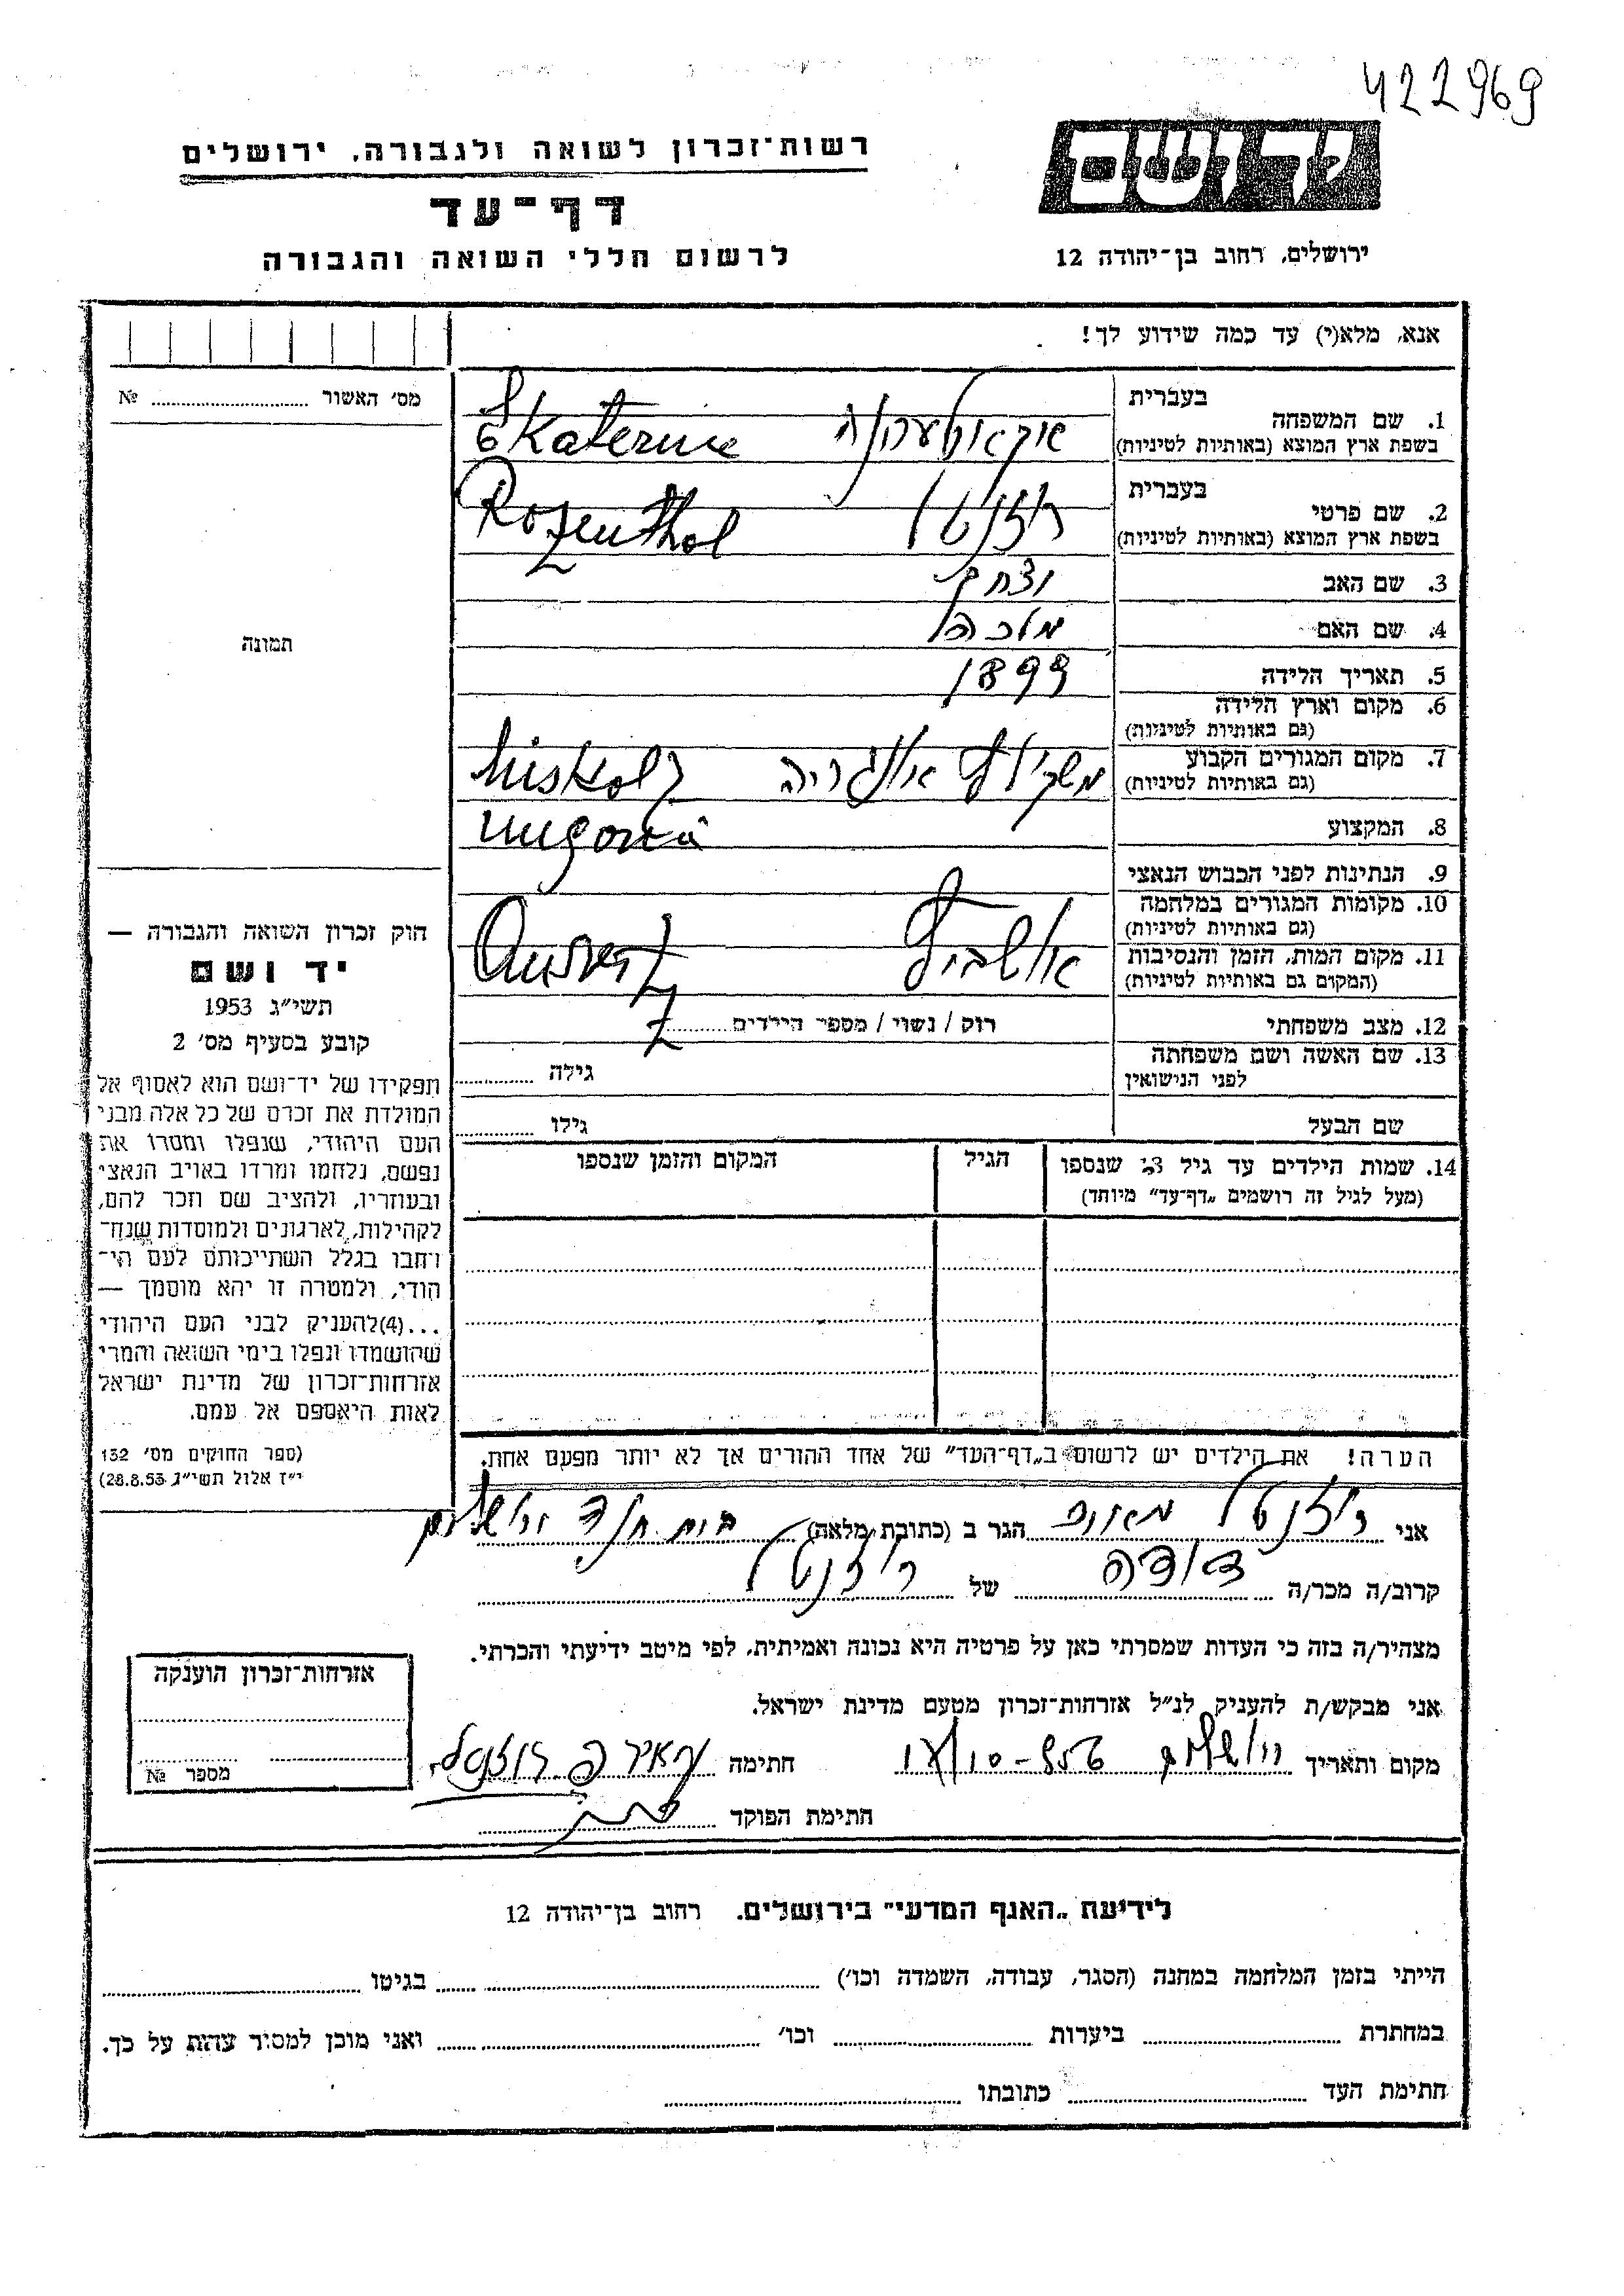 422969
יד ושם
רשות־זכרון לשואה ולגבורה, ירושלים
דף־עד
לרשום חללי השואה והגבורה
ירושלים, רחוב בן־יהודה 12
אנא, מלא(י) עד כמה שידוע לך!
מס' האשור № ........
תמונה
1. שם המשפחה
בעברית
בשפת ארץ המוצא (באותיות לטיניות)
Ekaterine
2. שם פרטי
בעברית
בשפת ארץ המוצא (באותיות לטיניות)
רוזנטל Rozenthal
3. שם האב
יצחק
4. שם האם
מלכה
5. תאריך הלידה
1899
6. מקום וארץ הלידה
(גם באותיות לטיניות)
7. מקום המגורים הקבוע
(גם באותיות לטיניות)
אונגריה Miskolz
8. המקצוע
9. הנתינות לפני הכבוש הנאצי
10. מקומות המגורים במלחמה
(גם באותיות לטיניות)
11. מקום המות, הזמן והנסיבות
(המקום גם באותיות לטיניות)
אושביץ
12. מצב משפחתי
רוק / נשוי / מספר הילדים ........
13. שם האשה ושם משפחתה
לפני הנישואין
גילה ........
שם הבעל
גילו ........
14. שמות הילדים עד גיל 13 שנספו
(מעל לגיל זה רושמים „דף־עד" מיוחד)
הגיל
המקום והזמן שנספו
חוק זכרון השואה והגבורה —
יד ושם
תשי"ג 1953
קובע בסעיף מס' 2
תפקידו של יד־ושם הוא לאסוף אל
המולדת את זכרם של כל אלה מבני
העם היהודי, שנפלו ומסרו את
נפשם, נלחמו ומרדו באויב הנאצי
ובעוזריו, ולהציב שם וזכר להם,
לקהילות, לארגונים ולמוסדות שנח־
רבו בגלל השתייכותם לעם הי־
הודי, ולמטרה זו יהא מוסמך —
...(4)להעניק לבני העם היהודי
שהושמדו ונפלו בימי השואה והמרי
אזרחות־זכרון של מדינת ישראל
לאות היאספם אל עמם.
(ספר החוקים מס' 132
י"ז אלול תשי"ג 28.8.53)
הערה! את הילדים יש לרשום ב„דף־העד" של אחד ההורים אך לא יותר מפעם אחת.
אני רוזנטל הגר ב (כתובת מלאה)
קרוב/ה מכר/ה דודה של רוזנטל
מצהיר/ה בזה כי העדות שמסרתי כאן על פרטיה היא נכונה ואמיתית, לפי מיטב ידיעתי והכרתי.
אני מבקש/ת להעניק לנ"ל אזרחות־זכרון מטעם מדינת ישראל.
מקום ותאריך ירושלים חתימה רוזנטל
חתימת הפוקד
אזרחות־זכרון הוענקה
מספר №
לידיעת „האגף המדעי" בירושלים. רחוב בן־יהודה 12
הייתי בזמן המלחמה במחנה (הסגר, עבודה, השמדה וכו') ........ בגיטו ........
במחתרת ........ ביערות ........ וכו' ........ ואני מוכן למסור עדות על כך.
חתימת העד ........ כתובתו ........